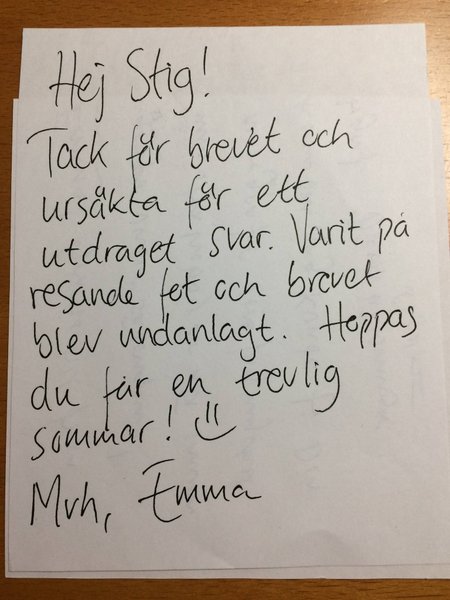 Hej Stig!
Tack för brevet och
ursäkta för ett
utdraget svar. Varit på
resande fot och brevet
blev undanlagt. Hoppas
du får en trevlig
sommar! :)
Mvh, Emma